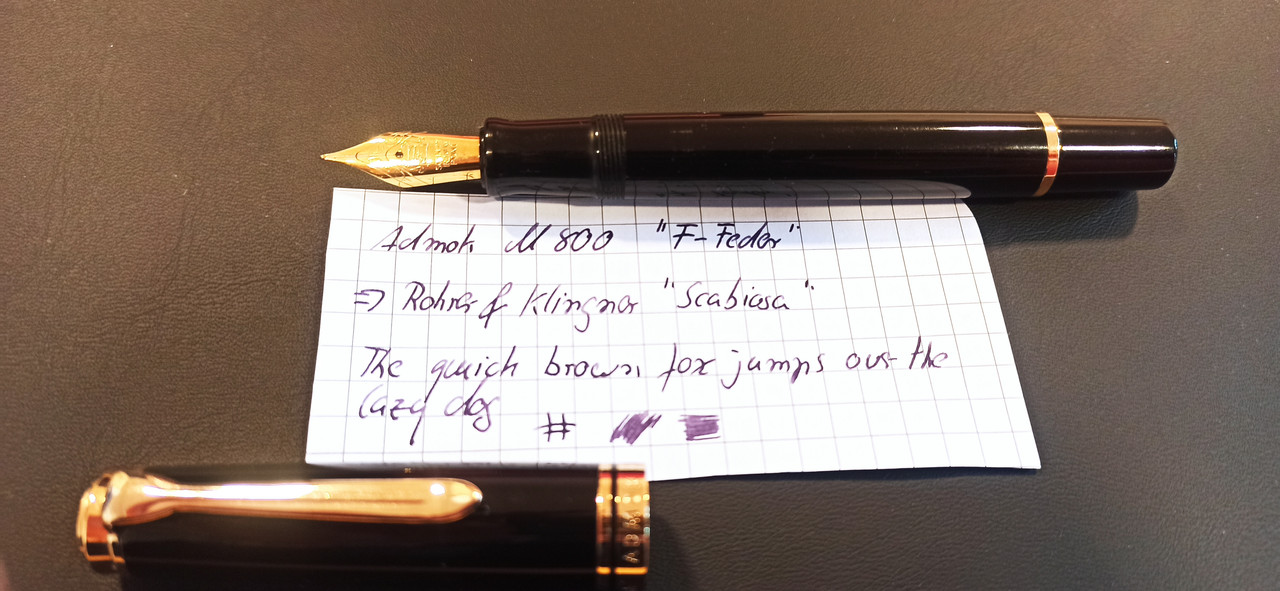 Admok M 800 "F-Feder"
=> Rohrer & Klingner "Scabiosa"
The quick brown fox jumps over the
lazy dog #